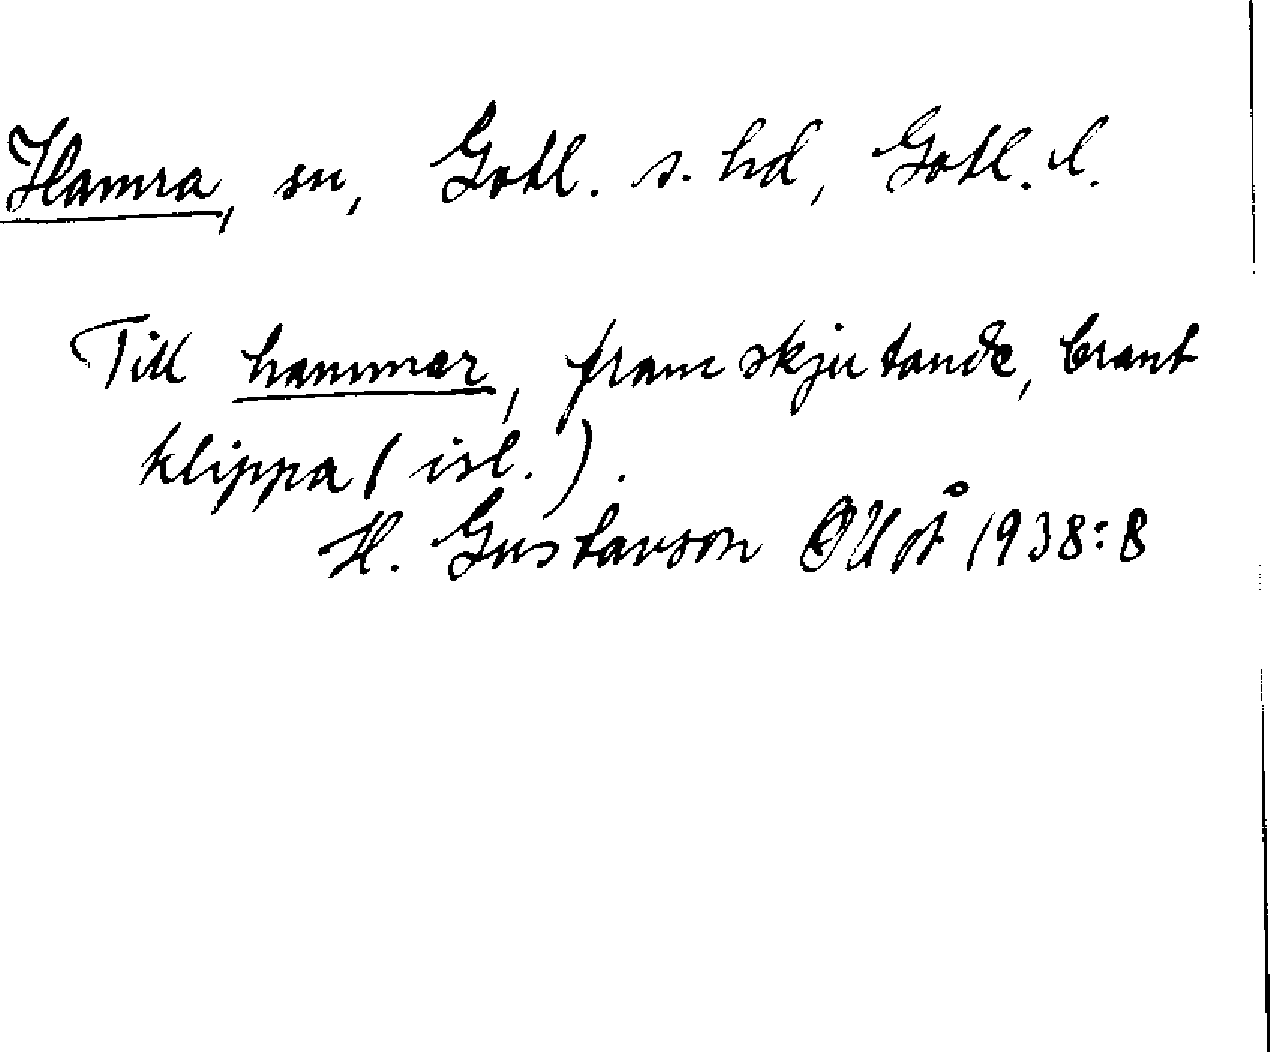 Hamra, sn, Gotl. s. hd, Gotl. l.
Till hammer, framskjutande, brant
klippa (isl.).
H. Gustavson OUÅ 1938:8